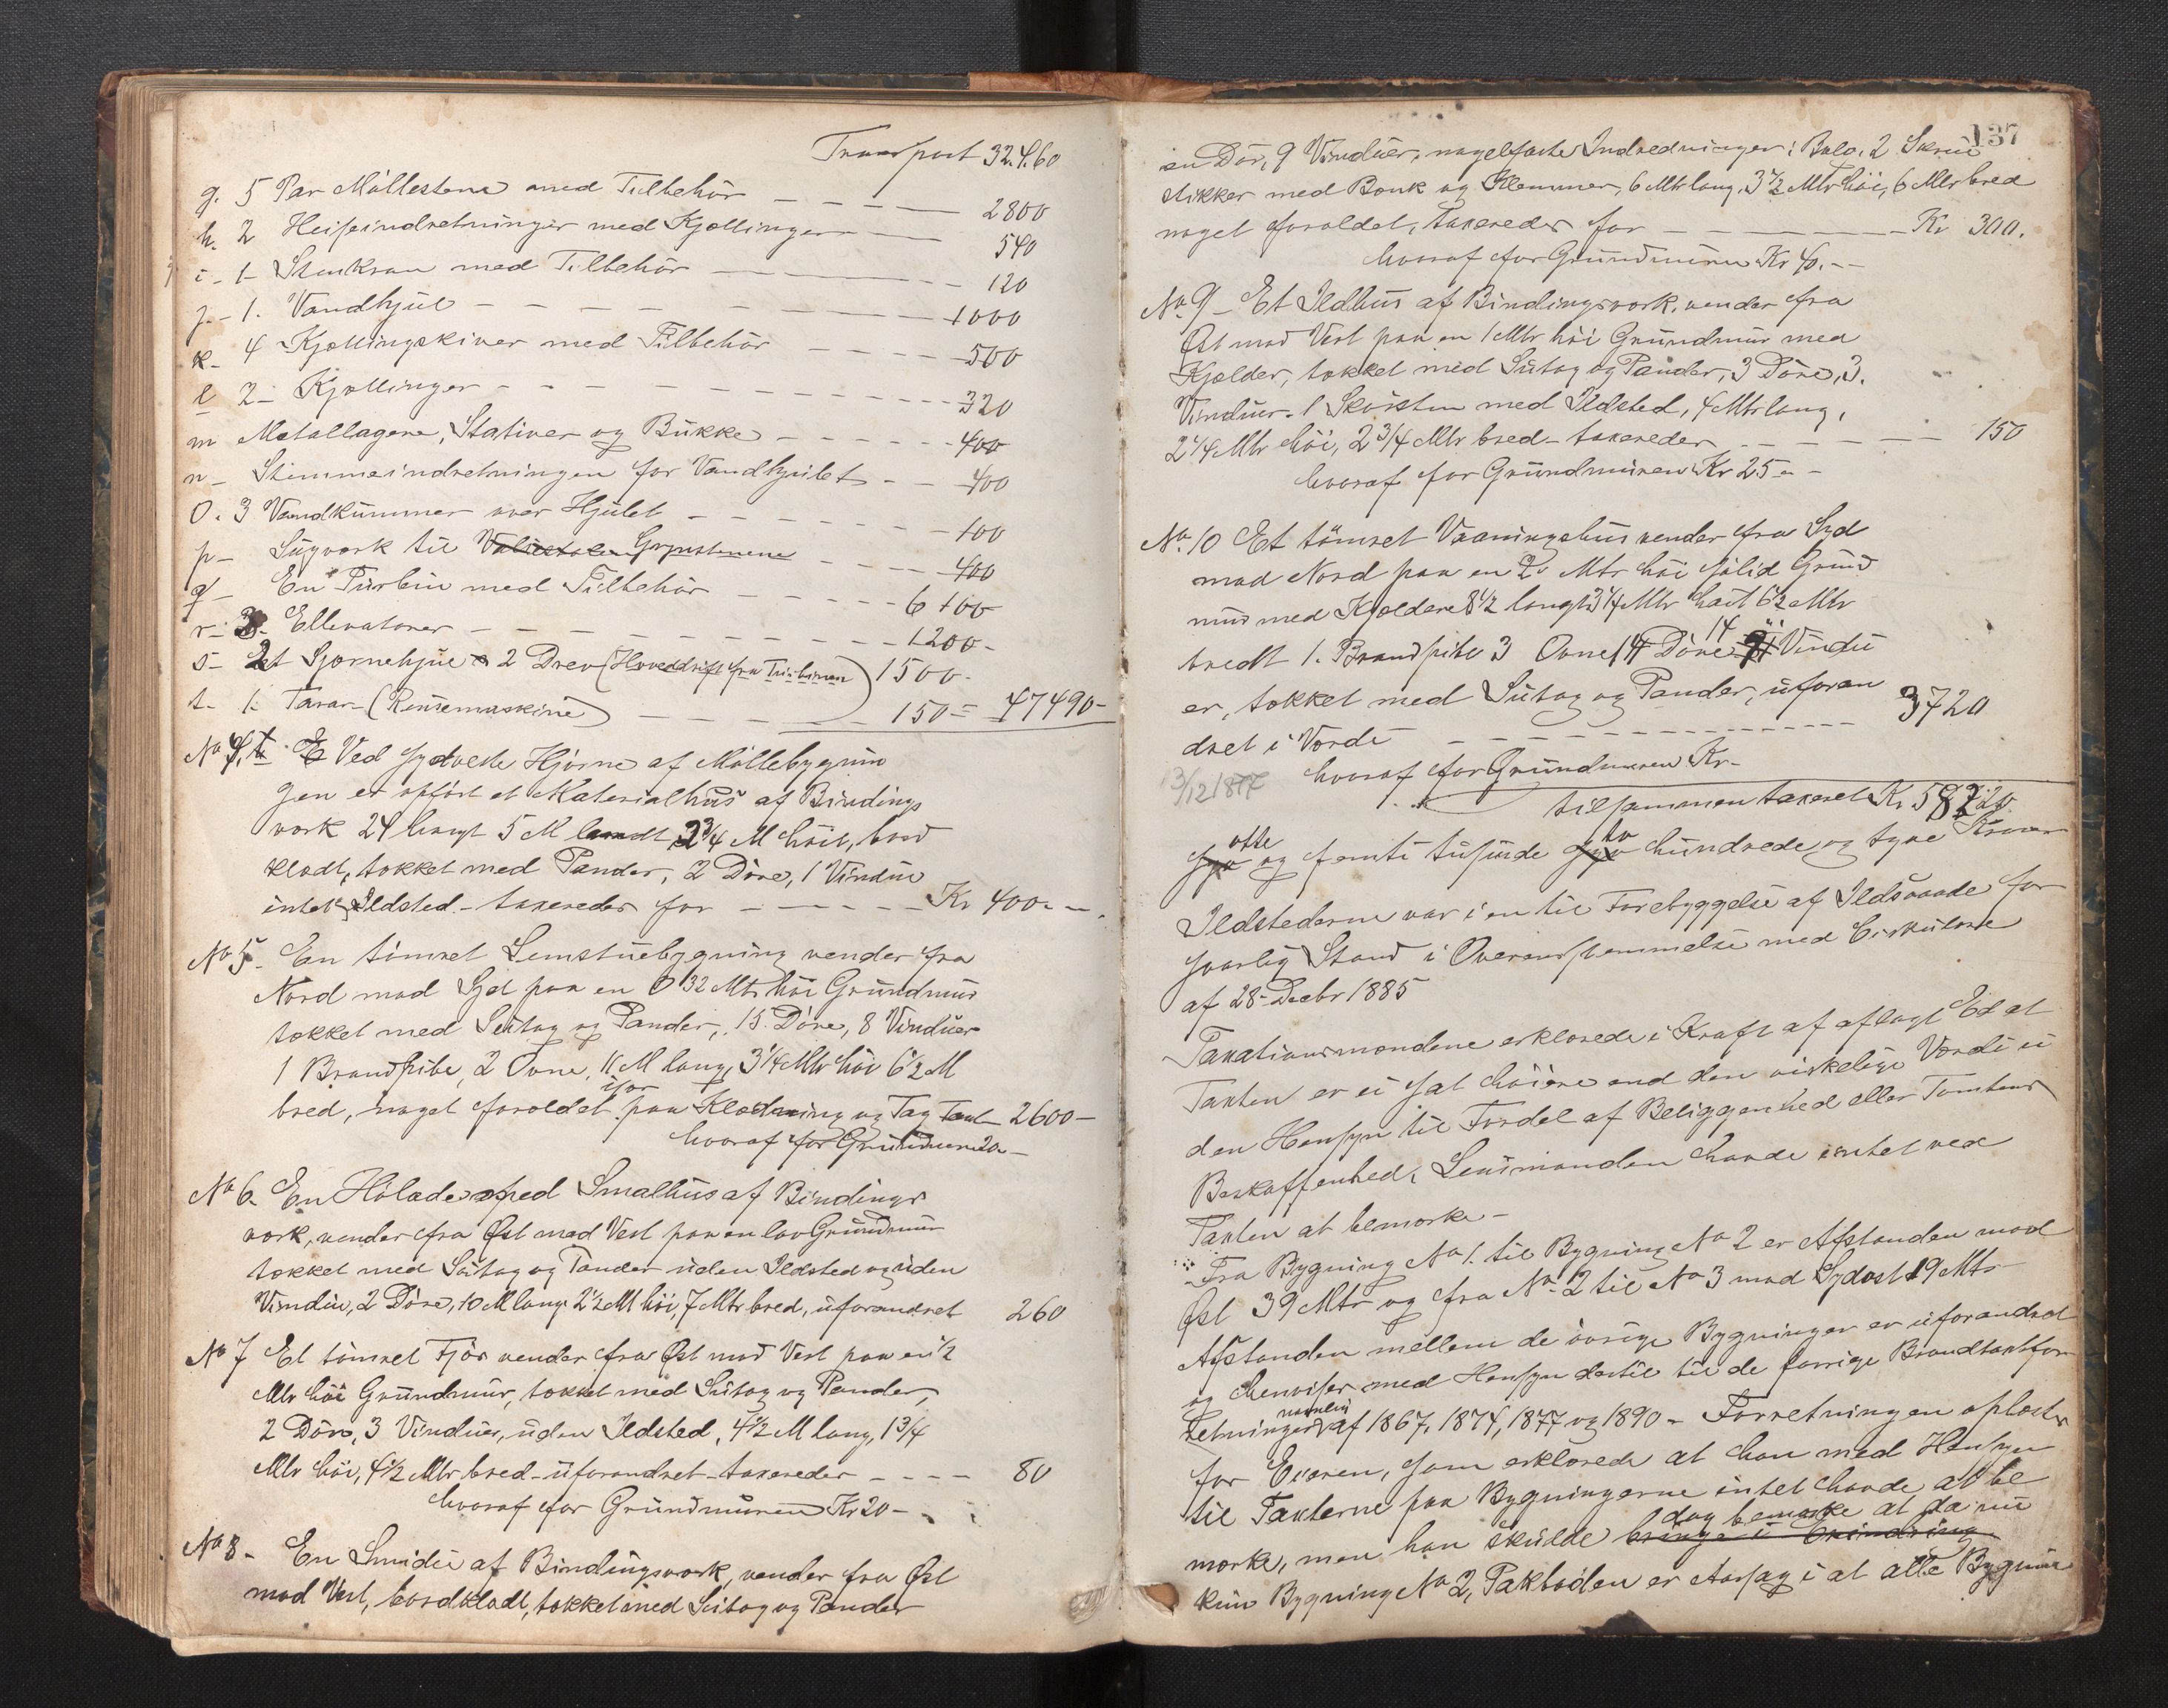 Transport 32.4.60
g. 5 Par Möllestene med Tilbehör 2800
h. 2 Heiseindretninger med Kjættinger 540
i - 1 Stenkran med Tilbehör 120
j. - 1. Vandhjul 1000
k - 4 Kjættingskiver med Tilbehör 500
l 2 - Kjættinger 320
m Metallagere, Stativer og Bükke 400
n - Stemmeindretningen for Vandhjulet 400
O. 3 Vandkummer over Hjulet 100
p - Sugværk til Grynstenene 400
q - En Turbin med Tilbehör 6100
r - 3 - Ellevatorer 1200 -
s - 2 Stjernehjul 2 Drev (Hoveddrift fra Turbinen) 1500 -
t - 1. Tarar (Rensemaskine) 150 = 47490 -
No 4, Ved sydvestre Hjörne af Möllebygnin
gen er opfört et Materialhus af Bindings
værk 24 langt 5 M bredt, 2 3/4 M höit, bord
klædt, tækket med Pander, 2 Döre, 1 Vindu
intet Ildsted - taxeredes for Kr 400 -
No 5 - En tömret Læmstuebygning vender fra
Nord mod Syd paa en 0 32 Mtr höi Grundmur
tækket med Sutag og Pander, 15 Döre, 8 Vinduer
1 Brandpibe, 2 Ovne, 11 M lang, 3 1/4 Mtr höi 6 1/2 M
bred, noget foraldet især paa Klædning og Tag Taxt 2600 -
hvoraf for Grundmuren 20 -
No 6. En Hölade med Smalhus af Bindings
værk, vender fra Öst mod Vest paa en lav Grundmur
tækket med Sutag og Pander uden Ildsted og uden
Vindu, 2 Döre, 10 M lang 2 1/2 M höi, 7 Mtr bred, uforandret 260
No 7 Et tömret Fjös vender fra Öst mod Vest paa en 1/2
Mtr höi Grundmur, tækket med Sutag og Pander,
2 Döre, 3 Vinduer, uden Ildsted, 4 1/2 M lang, 1 3/4
Mtr höi, 4 1/2 Mtr bred - uforandret - taxeredes 80
hvoraf for Grundmuren Kr 20 -
No 8 - En Smidie af Bindingsværk, vender fra Öst
mod Vest, bordklædt, tækket med Sutag og Pander
137
en Dör, 9 Vinduer, nagelfaste Indredninger: Bælg, 2 Skrue
stikker med Bænk og Klemmer, 6 Mtr lang, 3 1/2 Mtr höi, 6 Mtr bred
noget foraldet, taxeredes for Kr 300.
hvoraf for Grundmuren Kr 40. -
No 9 - Et Ildhus af Bindingsværk, vender fra
Öst mod Vest paa en 1 Mtr höi Grundmur med
Kjælder, tækket med Sutag og Pander, 3 Döre, 3.
Vinduer - 1 Skorsten med Ildsted, 4 Mtr lang,
2 1/4 Mtr höi, 2 3/4 Mtr bred - taxeredes 150
hvoraf for Grundmuren Kr 25 -
No 10 Et tömret Vaaningshus vender fra Syd
mod Nord paa en 2 Mtr höi solid Grund
mur med Kjældere 8 1/2 langt 3 1/4 Mtr höit 6 1/2 Mtr
bredt 1. Brandpibe 3 Ovne 14 Döre 14 Vindu
er, tækket med Sutag og Pander, uforan
dret i Værdi 3720
13/12 1877 hvoraf for Grundmuren Kr -
tilsammen taxeret Kr 58220
Syv otte og femti tusinde syv to hundrede og tyve Kroner
Ildstederne var i en til Forebyggelse af Ildsvaade for
svarlig Stand i Overensstemmelse med Cirkulære
af 28 - Decbr 1885
Taxationsmændene erklærede i Kraft af aflagt Ed at
Taxten er ei sat höiere end den virkelige Værdi ui
den Hensyn til Fordel af Beliggenhed eller Tomtens
Beskaffenhed, Lensmanden havde intet ved
Taxten at bemærke -
Fra Bygning No 1. til Bygning No 2 er Afstanden mod
Öst 39 Mtr og fra No 2 til No 3 mod Sydost 19 Mtr
Afstanden mellem de övrige Bygninger er uforandret
og henviser med Hensyn dertil til de forrige Brandtaxtfor
retninger navnlig af 1867, 1874, 1877 og 1890 - Forretningen oplæstes
for Eieren, som erklærede at han med Hensyn
til Taxterne paa Bygningerne intet havde at be
mærke, men han skulde bringe i Erindring dog bemærke at da nu
kun Bygning No 2, Pakboden er Aarsag i at alle Bygnin